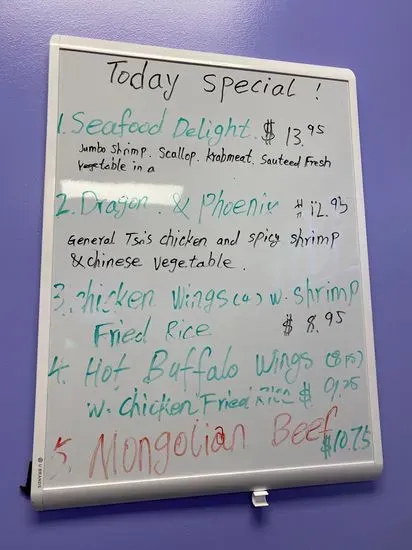 Today Special !
1. Seafood Delight. $ 13.95
Jumbo shrimp. Scallop. Krabmeat. Sauteed Fresh
vegetable in a
2. Dragon. & Phoenix $ 12.95
General Tso's chicken and spicy shrimp
& chinese vegetable.
3. chicken wings (4) w. shrimp
Fried Rice $ 8.95
4. Hot Buffalo wings (8 ps)
w. chicken Fried Rice $ 9.25
5. Mongolian Beef
$10.75
U BRANDS